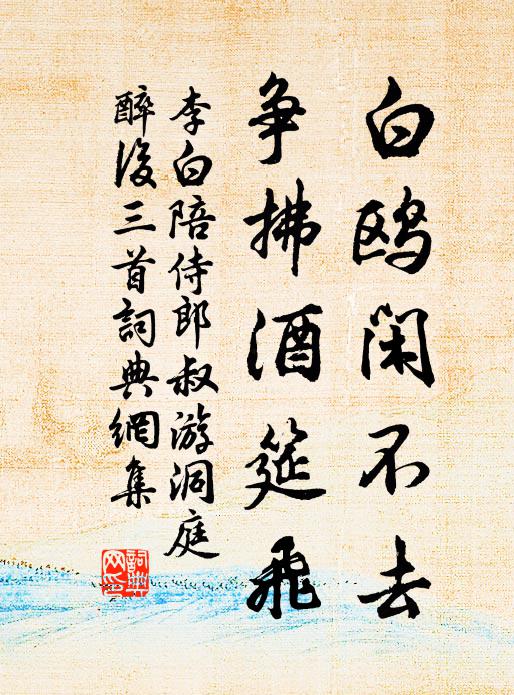 白鸥闲不去
争拂酒筵飛
李白陪侍郎叔游洞庭
醉後三首詞典網集